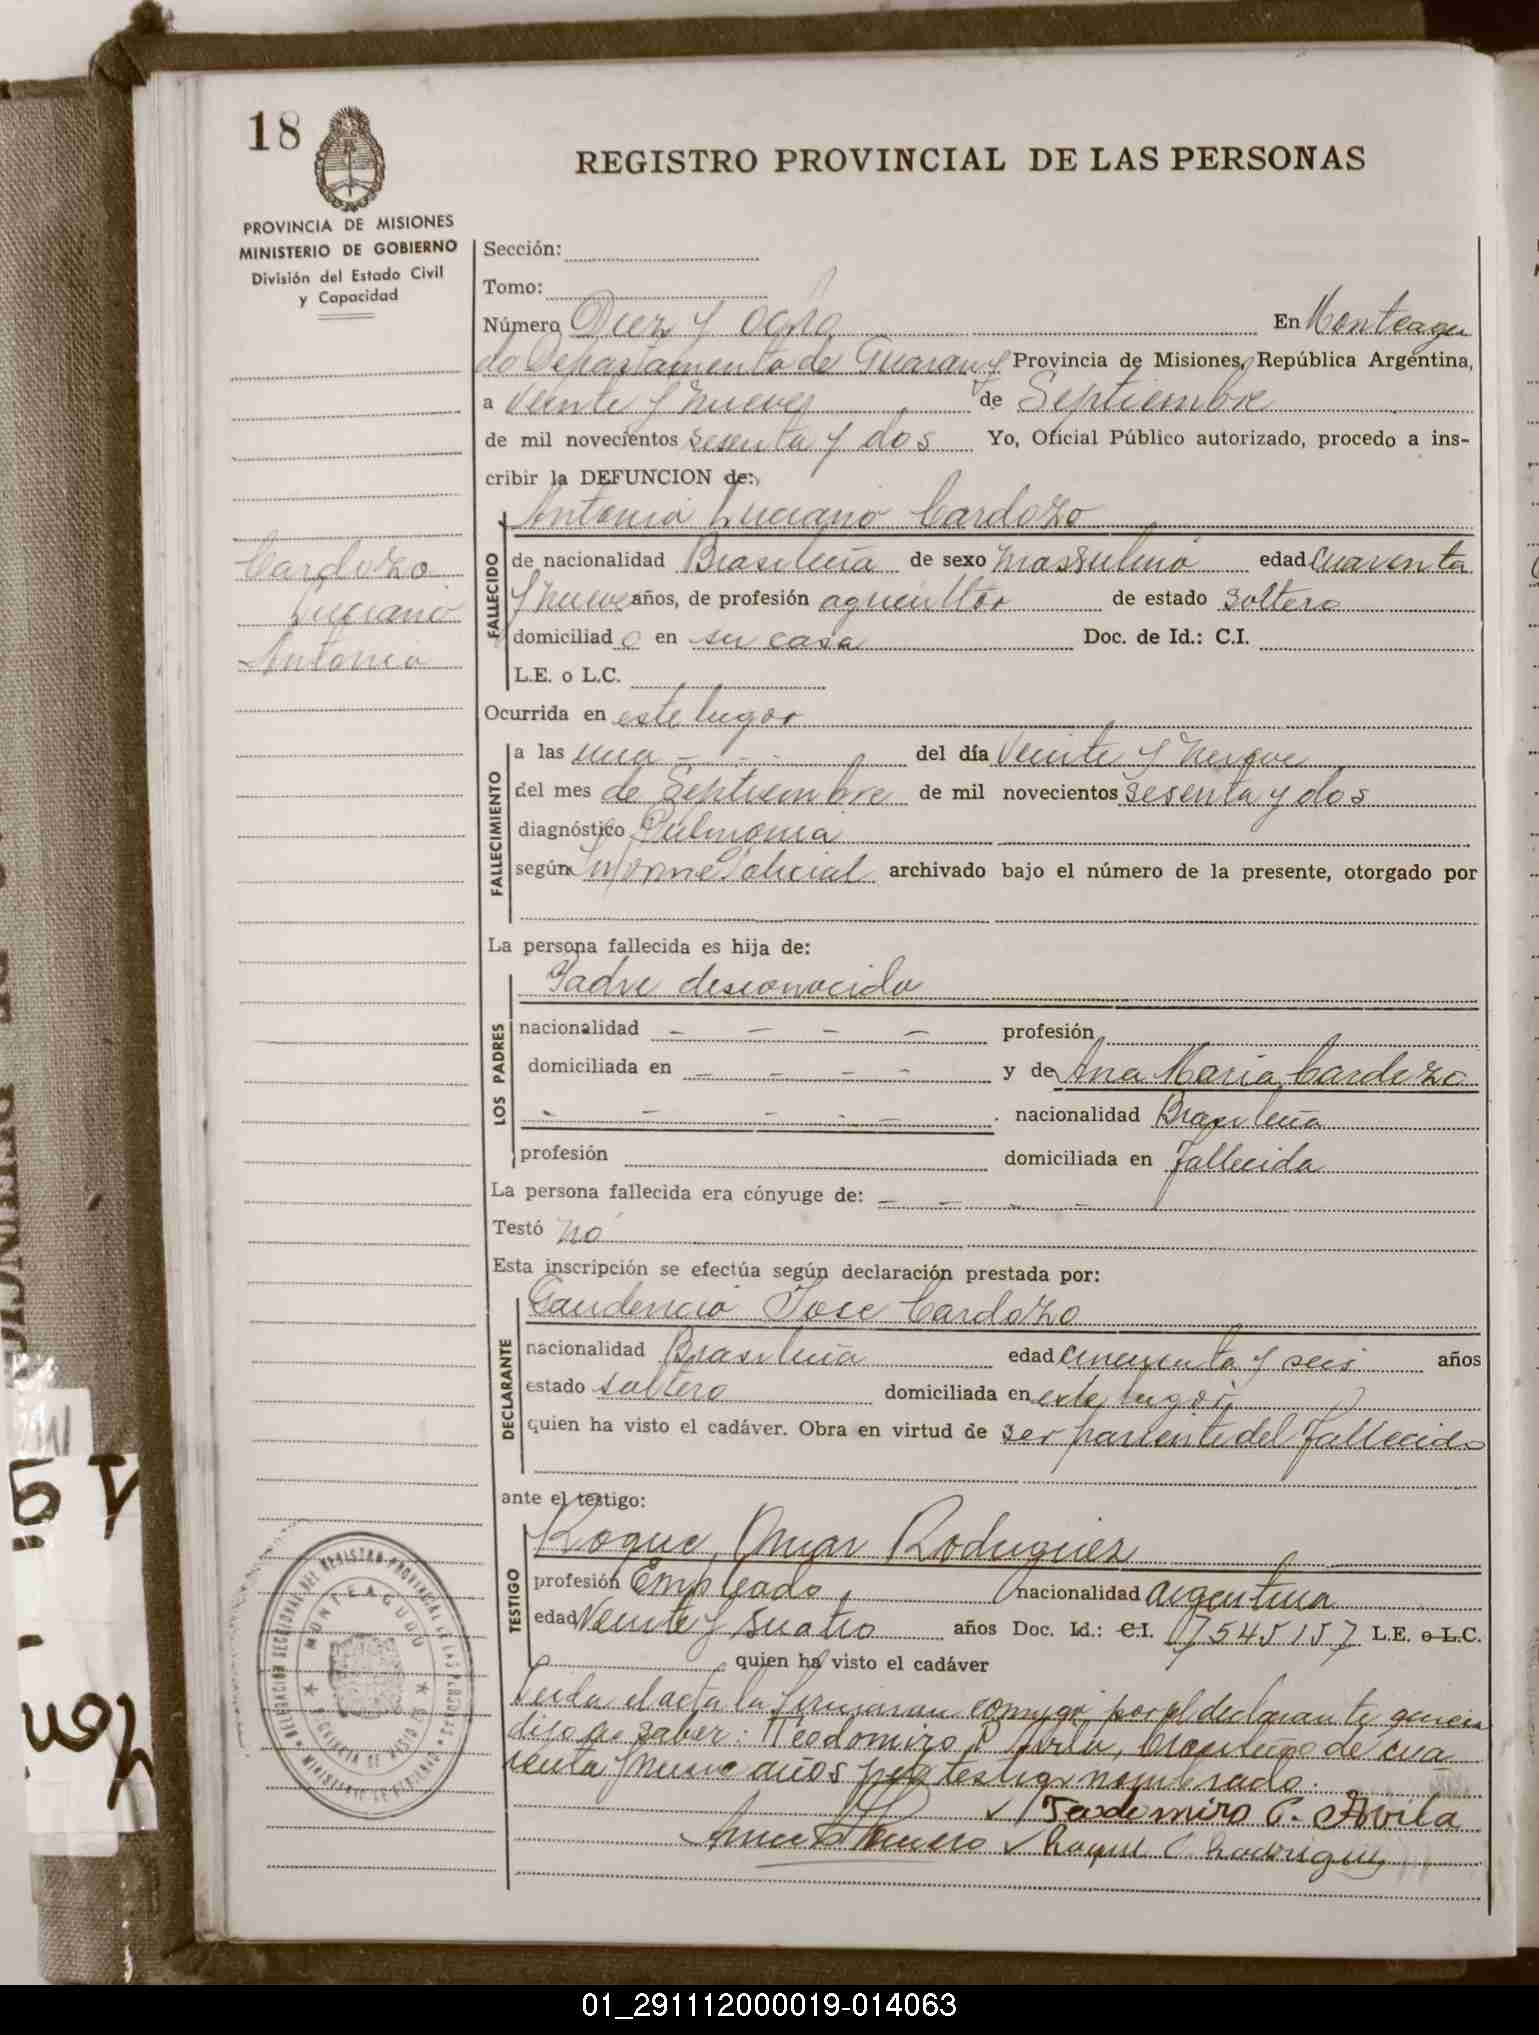 18
REGISTRO PROVINCIAL DE LAS PERSONAS
PROVINCIA DE MISIONES
MINISTERIO DE GOBIERNO
División del Estado Civil
y Capacidad
Sección:
Tomo:
Número Diez y ocho En Monteagu
do Departamento de Guaraní Provincia de Misiones, República Argentina,
a Veinte y nueve de Septiembre
de mil novecientos sesenta y dos Yo, Oficial Público autorizado, procedo a ins-
cribir la DEFUNCION de:
Antonio Luciano Cardozo
Cardozo
Luciano
Antonio
FALLECIDO
de nacionalidad Brasileña de sexo massulino edad cuarenta
y nueve años, de profesión agricultor de estado soltero
domiciliad o en su casa Doc. de Id.: C.I.
L.E. o L.C.
Ocurrida en este lugar
FALLECIMIENTO
a las una del día Veinte y nueve
del mes de Septiembre de mil novecientos sesenta y dos
diagnóstico Pulmonia
según Informe Policial archivado bajo el número de la presente, otorgado por
La persona fallecida es hija de:
LOS PADRES
Padre desconocido
nacionalidad — — — — profesión
domiciliada en — — — — y de Ana Maria Cardozo
- — - - — nacionalidad Brasileña
profesión domiciliada en fallecida
La persona fallecida era cónyuge de: — — - -
Testó no
Esta inscripción se efectúa según declaración prestada por:
DECLARANTE
Gaudencio Jose Cardozo
nacionalidad Brasileña edad cincuenta y seis años
estado soltero domiciliada en este lugar
quien ha visto el cadáver. Obra en virtud de ser pariente del fallecido
ante el testigo:
TESTIGO
Roque Omar Rodriguez
profesión Empleado nacionalidad argentina
edad Veinte y suatro años Doc. Id.: C.I. 07545157 L.E. o L.C.
quien ha visto el cadáver
Leida el acta la firmaran comigo por el declarante quien
dijo no saber: Teodomiro P Avila, brasileño de cua
renta y nueve años y el testigo nombrado.
Teodomiro C. Avila
Roque O. Rodriguez
DELEGACION SECCIONAL DEL REGISTRO PROVINCIAL DE LAS PERSONAS
MONTEAGUDO
MINISTERIO DE GOBIERNO
01_291112000019-014063